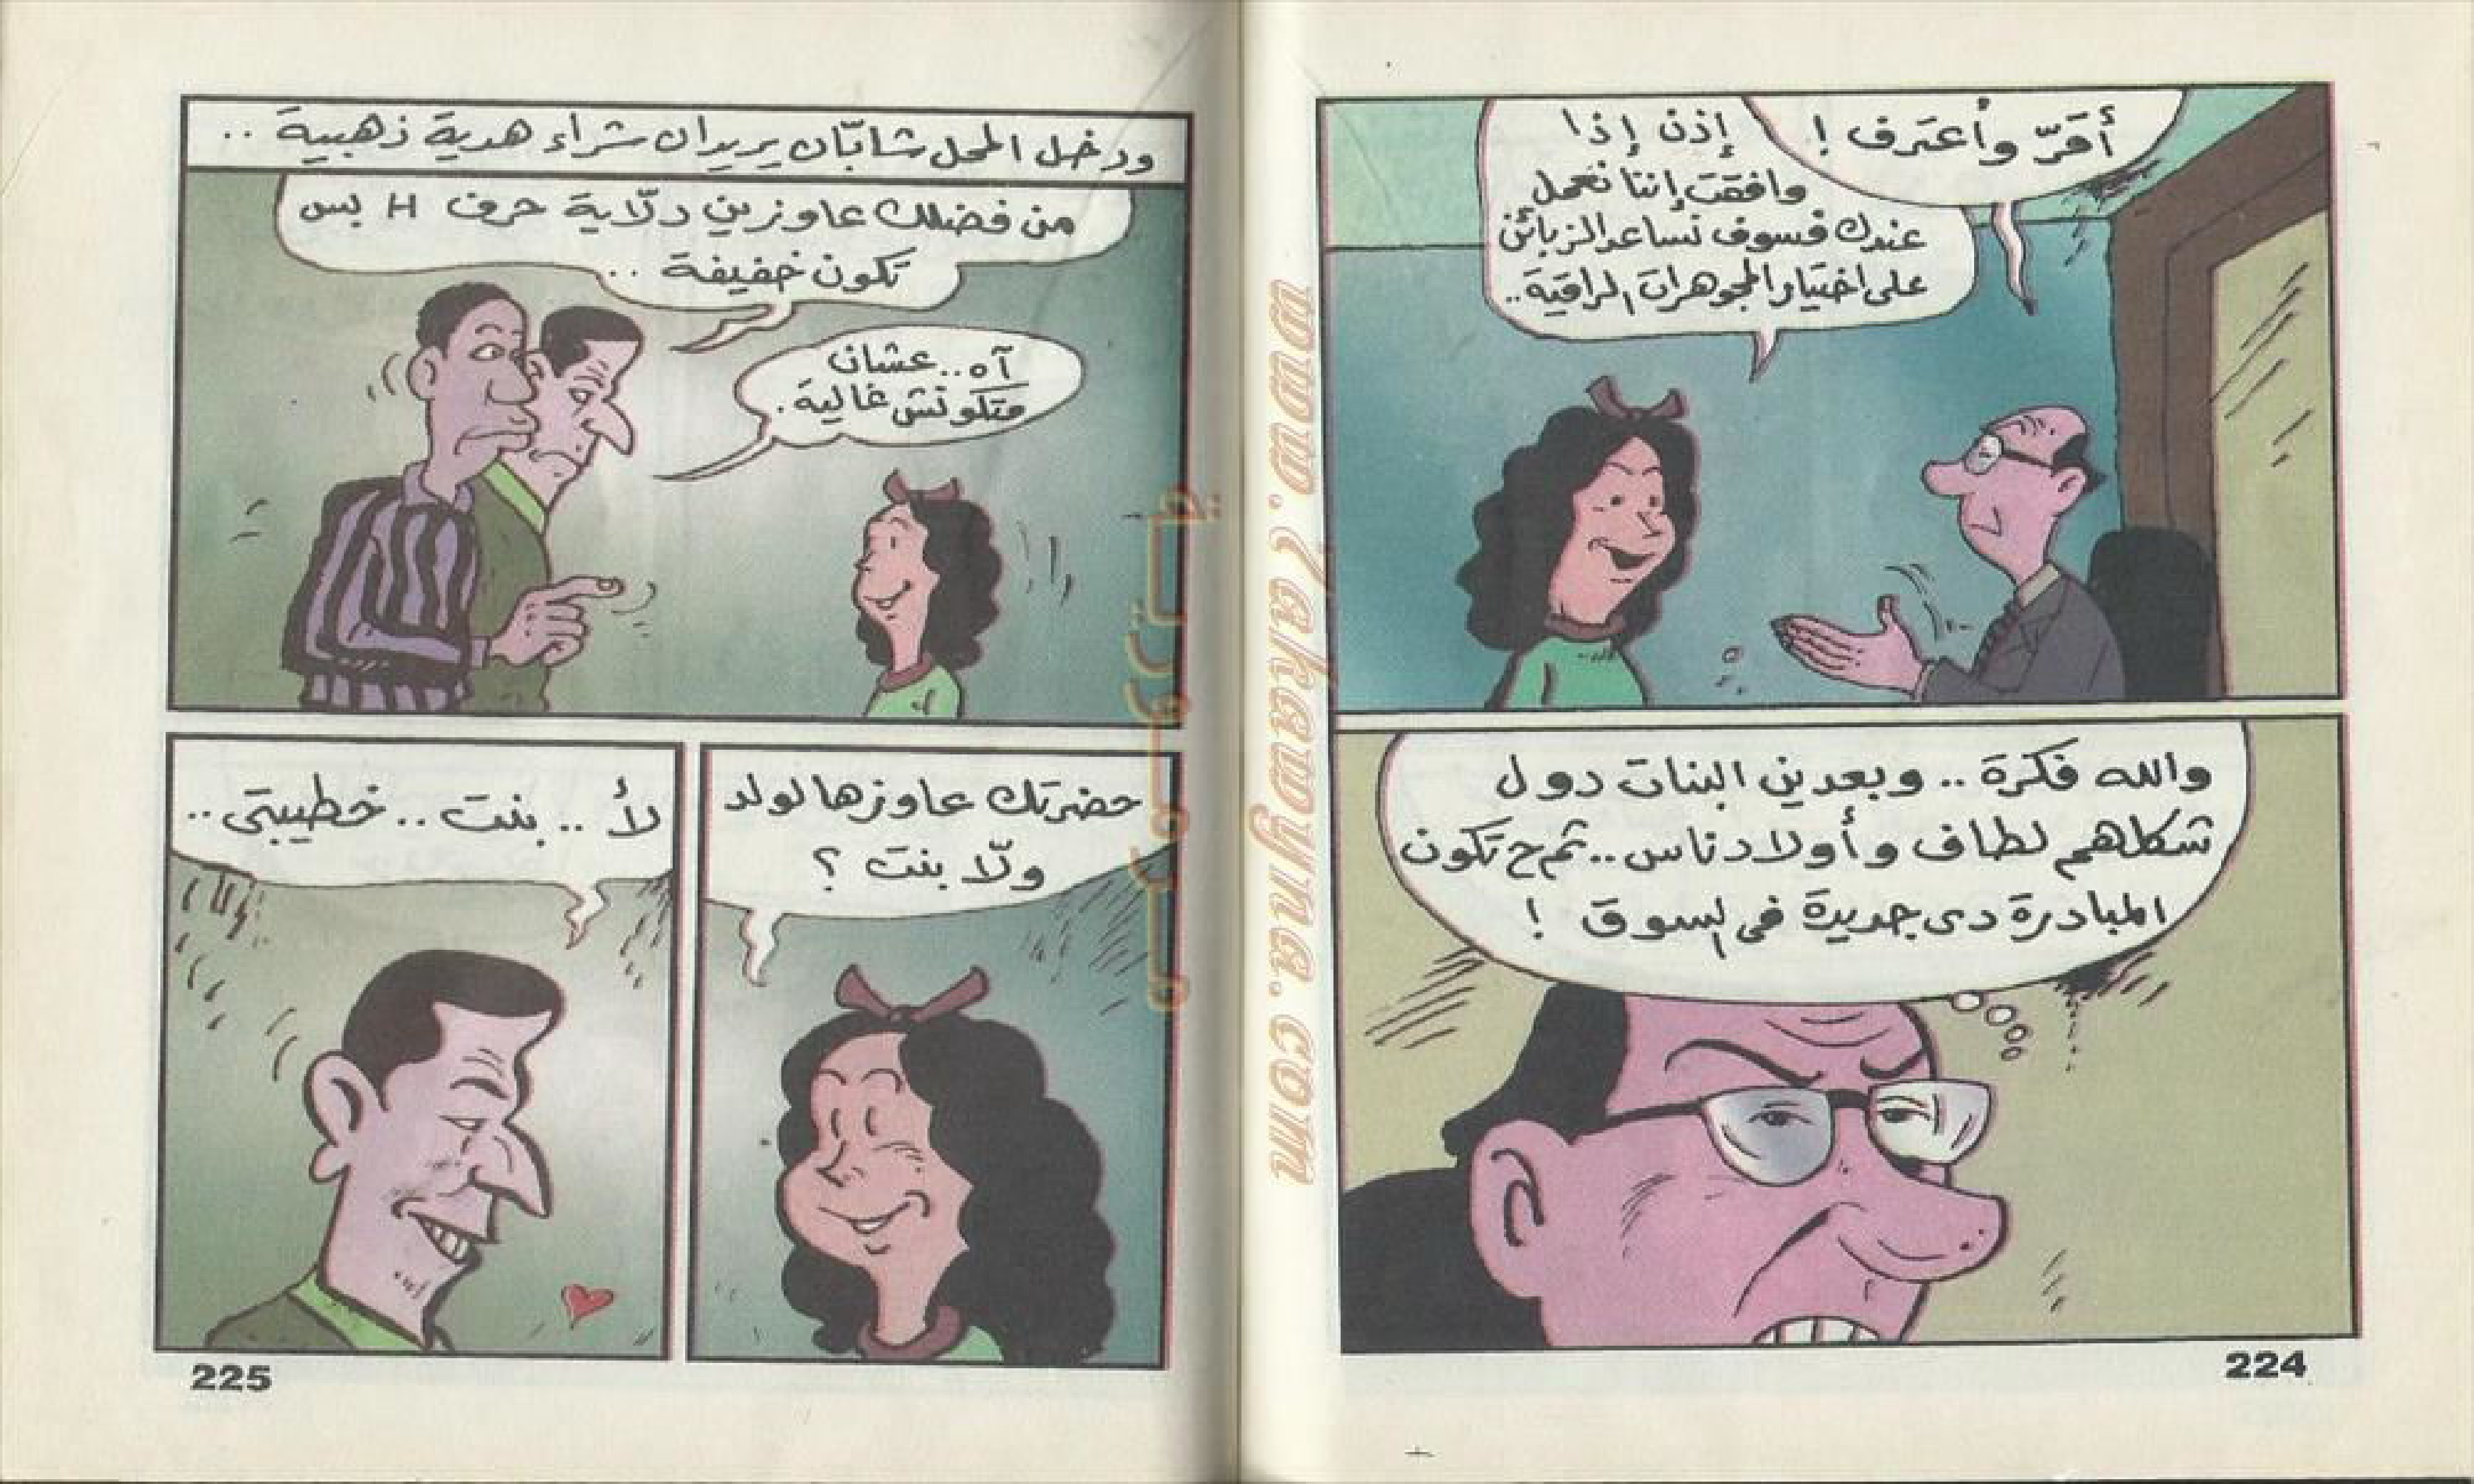 أقرّ وأعترف !
إذن إذا
وافقت إننا نعمل
عندك فسوف نساعد الزبائن
على اختيار المجوهرات الراقية..
والله فكرة .. وبعدين البنات دول
شكلهم لطاف وأولاد ناس .. ثم ح تكون
المبادرة دى جديدة فى السوق !
224
ودخل المحل شابّان يريدان شراء هدية ذهبية ..
من فضلك عاوزين دلّاية حرف H بس
تكون خفيفة ..
آه.. عشان
متكونش غالية.
حضرتك عاوزها لولد
ولّا بنت ؟
لأ .. بنت .. خطيبتى ..
225
www.Zakawyna.com